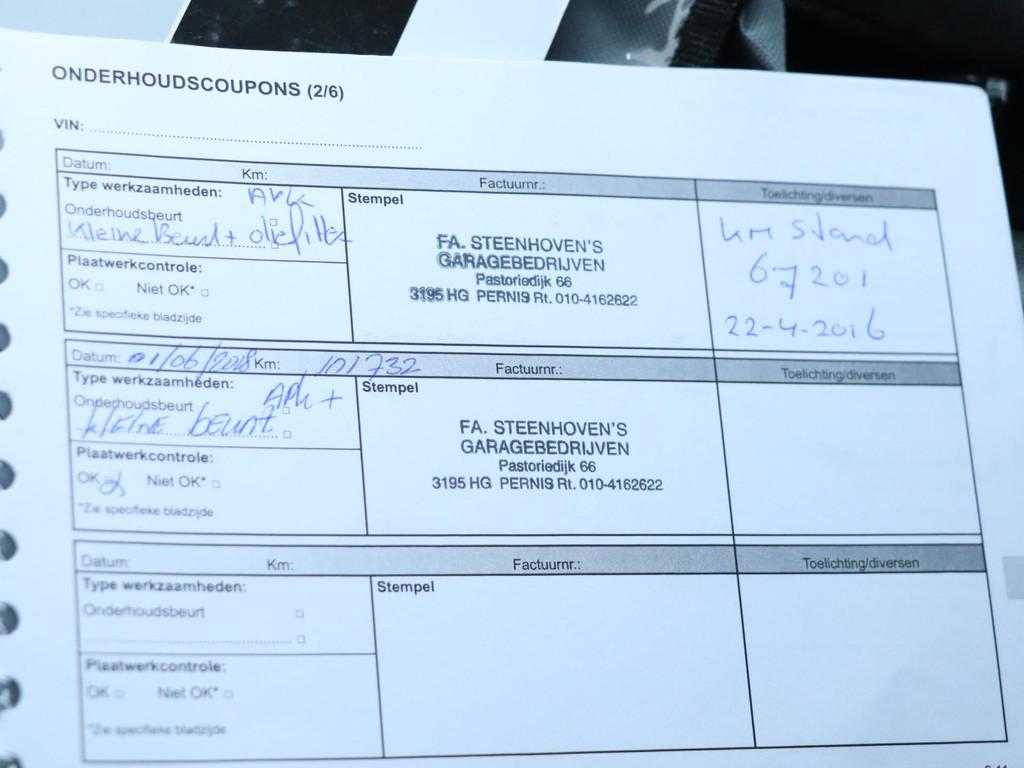 ONDERHOUDSCOUPONS (2/6)
VIN:
Datum: Km: Factuurnr.: Toelichting/diversen
Type werkzaamheden: APK
Stempel
Onderhoudsbeurt
Kleine Beurt + oliefilter
Plaatwerkcontrole:
OK Niet OK*
*Zie specifieke bladzijde
FA. STEENHOVEN'S
GARAGEBEDRIJVEN
Pastoriedijk 66
3195 HG PERNIS Rt. 010-4162622
km stand
67201
22-4-2016
Datum: 01/06/2018 Km: 101732 Factuurnr.: Toelichting/diversen
Type werkzaamheden: APK +
Stempel
Onderhoudsbeurt
KLEINE BEURT
Plaatwerkcontrole:
OK Niet OK*
*Zie specifieke bladzijde
FA. STEENHOVEN'S
GARAGEBEDRIJVEN
Pastoriedijk 66
3195 HG PERNIS Rt. 010-4162622
Datum: Km: Factuurnr.: Toelichting/diversen
Type werkzaamheden:
Stempel
Onderhoudsbeurt
Plaatwerkcontrole:
OK Niet OK*
*Zie specifieke bladzijde